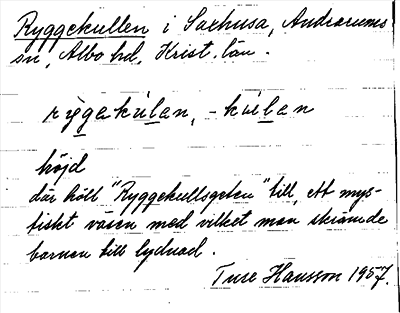 Ryggekullen i Saxhusa, Andrarums
sn, Albo hd, Krist. län.
rỳgakúlan, -kulan
höjd
där höll "Ryggekullsgeten" till, ett mys-
tiskt väsen med vilket man skrämde
barnen till lydnad.
Ture Hansson 1957.